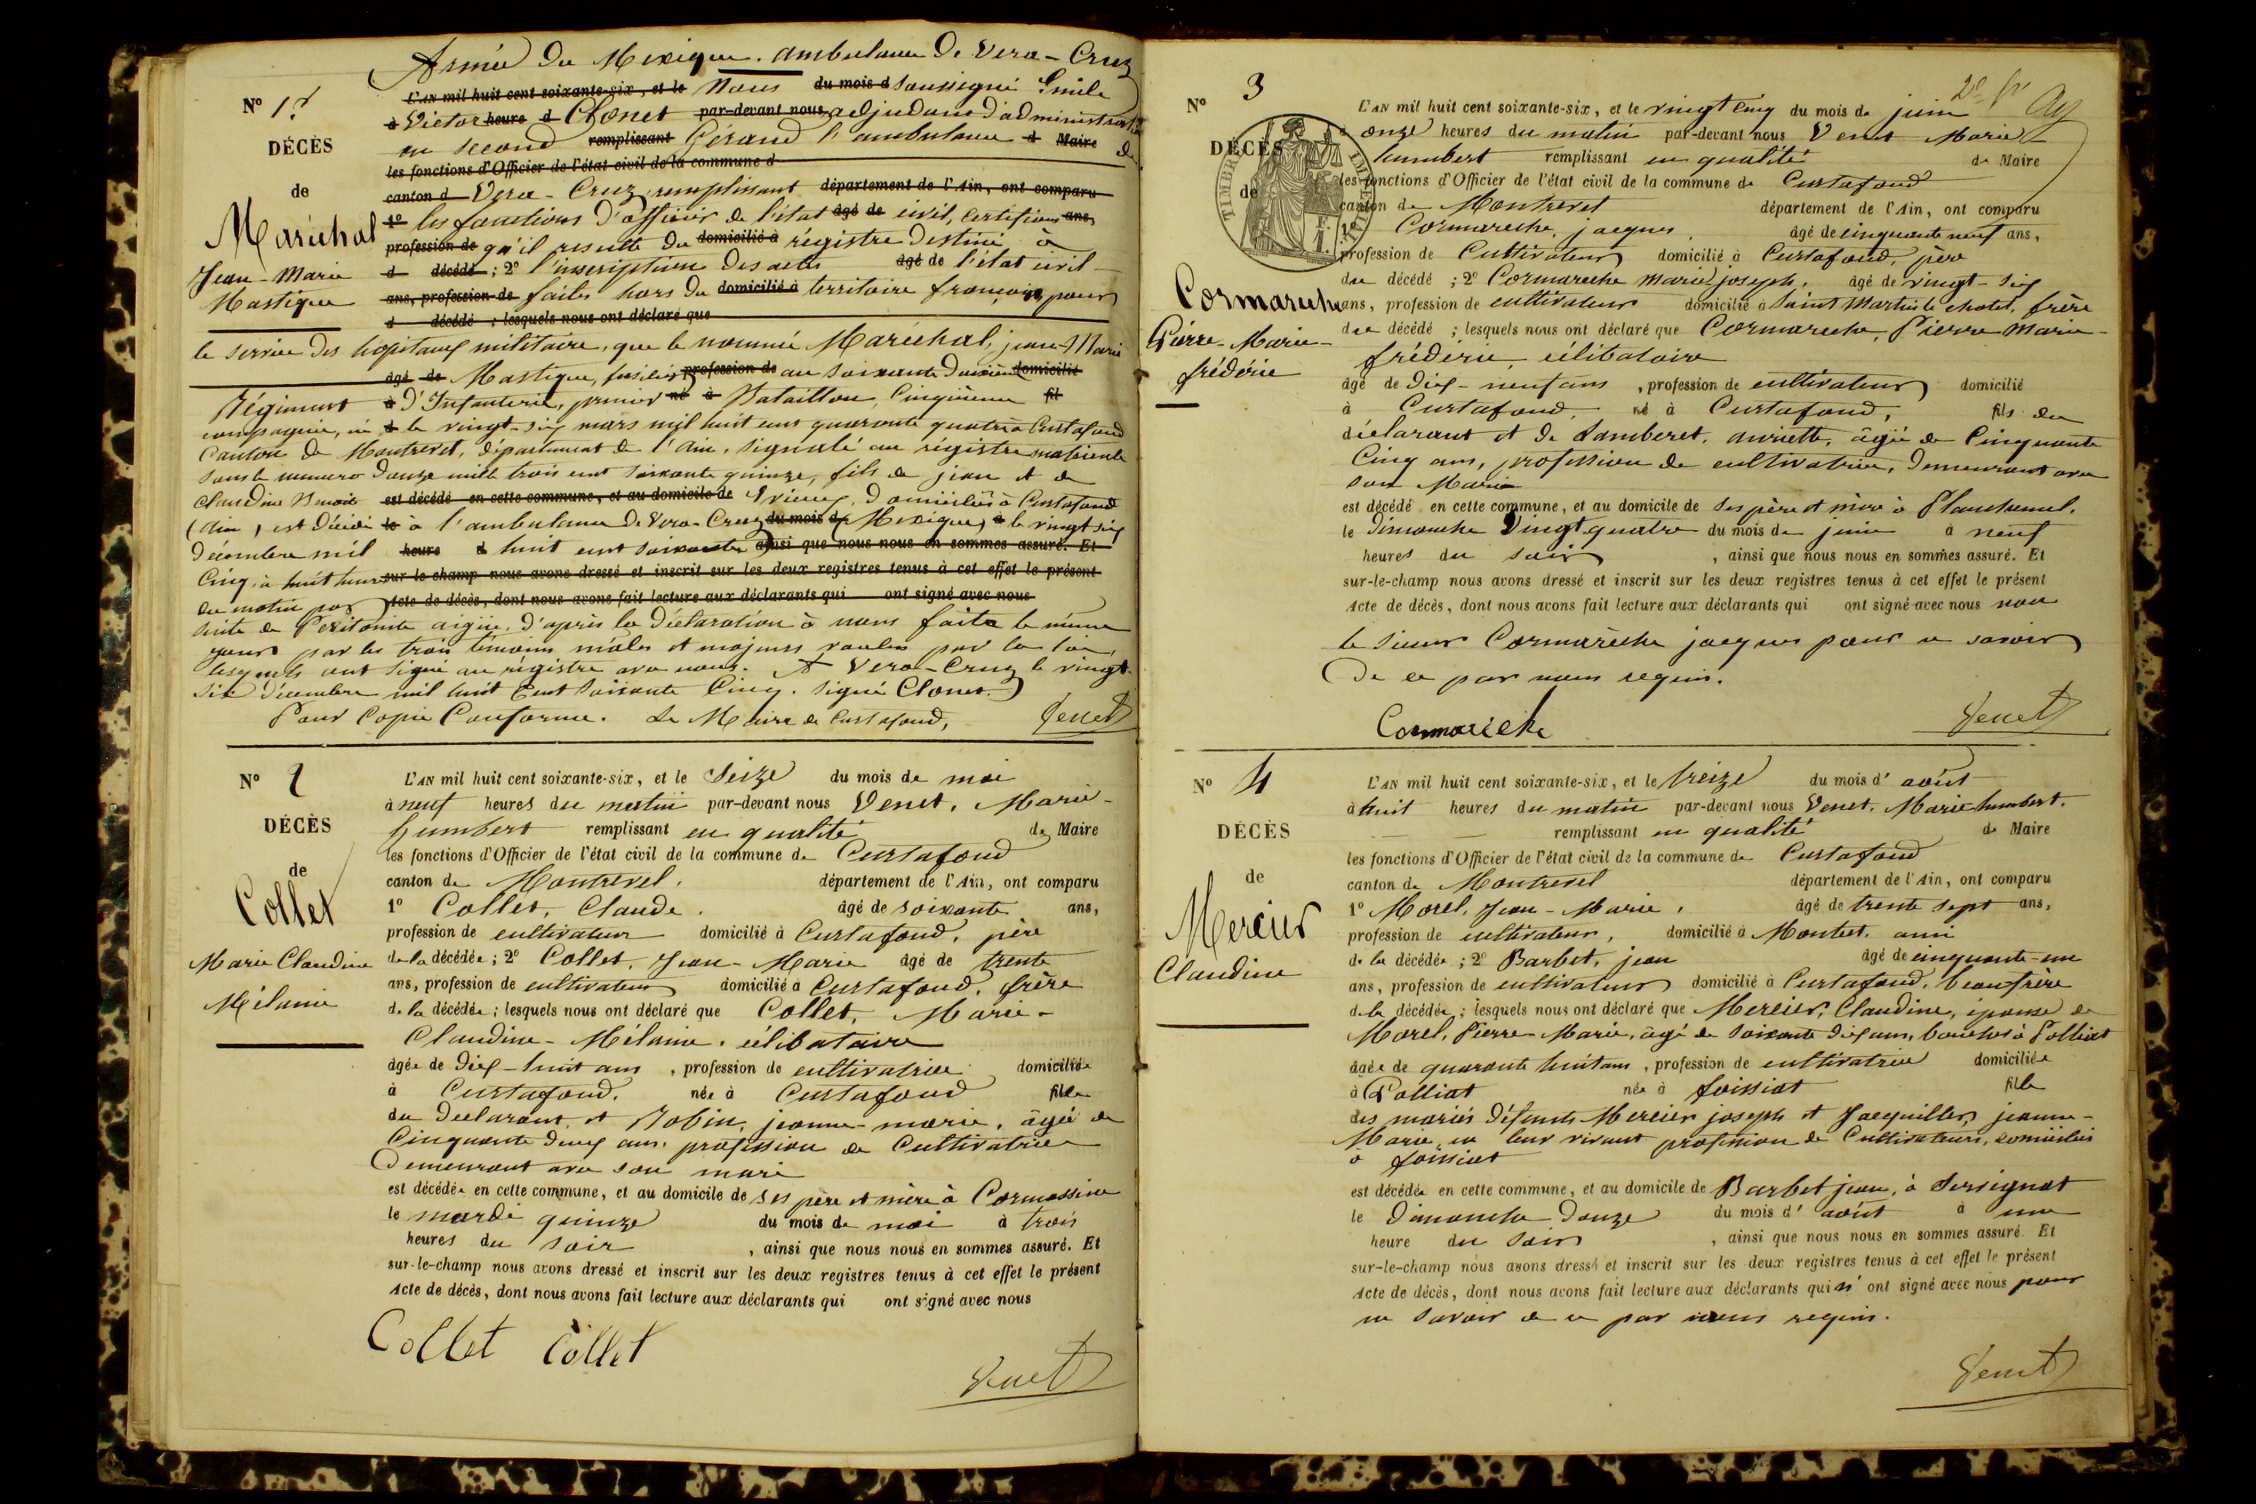 Armée du Mexique. ambulance de Vera-Cruz
N° 1er
L'AN mil huit cent soixante-six, et le Nous du mois d soussigné Emile
à Victor heure d Clonet par-devant nous, adjudant d'administration
DÉCÈS
en second remplissant Gérand l'ambulance d Maire de
les fonctions d'Officier de l'état civil de la commune d
de
canton d Vera-Cruz, remplissant département de l'Ain, ont comparu
Maréchal
1° les fonctions d'officier de l'état âgé de civil, certifions ans,
profession de qu'il resulte du domicilié à régistre destiné à
Jean-Marie
d décédé ; 2° l'inscription des actes âgé de l'état civil
Mastique
ans, profession de faites hors du domicilié à territoire français pour
d décédé ; lesquels nous ont déclaré que
le service des hopitaux militaire, que le nommé Maréchal, jean-Marie
âgé de Mastique, fusilier profession de au soixante deuxième domicilié
Régiment à d'Infanterie, premier né à Bataillon, Cinquième fil
compagnie, né d le vingt-six mars mil huit cent quarante quatre à Curtafond
Canton de Montrevel, département de l'Ain, signalé au régistre matricule
sous le numero douze mille trois cent soixante quinze, fils de jean et de
Claudine Benoite est décédé en cette commune, et au domicile de Vrieux, domiciliés à Curtafond
(Ain) est décédé le à l'ambulance de Vera-Cruz du mois d (Mexique) à le vingt six
Décembre mil heure d huit cent soixante ainsi que nous nous en sommes assuré. Et
Cinq, à huit heures sur-le-champ nous avons dressé et inscrit sur les deux registres tenus à cet effet le présent
du matin par Acte de décès, dont nous avons fait lecture aux déclarants qui ont signé avec nous
suite de Péritonite aigüe. D'après la Déclaration à nous faite le même
jours par les trois témoins mâles et majeurs voulus par la loi,
lesquels ont signé au régistre avec nous. A Vera-Cruz le vingt-
six décembre mil huit Cent soixante Cinq. signé Clonet.
Pour Copie Conforme. Le Maire de Curtafond, Venet
N° 2
L'AN mil huit cent soixante-six, et le Seize du mois de mai
à neuf heures du matin par-devant nous Venet, Marie-
DÉCÈS
humbert remplissant en qualité de Maire
les fonctions d'Officier de l'état civil de la commune de Curtafond
de
canton de Montrevel. département de l'Ain, ont comparu
Collet
1° Collet, Claude. âgé de soixante ans,
profession de cultivateur domicilié à Curtafond, père
Marie Claudine
de la décédée ; 2° Collet, Jean-Marie âgé de trente
ans, profession de cultivateur domicilié à Curtafond, frère
Mélanie
de la décédée ; lesquels nous ont déclaré que Collet, Marie-
Claudine-Mélanie. célibataire
âgée de Dix-huit ans, profession de cultivatrice domiciliée
à Curtafond. née à Curtafond fille
du Declarant et Robin, jeanne-marie, âgée de
Cinquante deux ans. profession de Cultivatrice
Demeurant avec son mari
est décédée en cette commune, et au domicile de ses père et mère à Cormassine
le mardi quinze du mois de mai à trois
heures du soir, ainsi que nous nous en sommes assuré. Et
sur-le-champ nous avons dressé et inscrit sur les deux registres tenus à cet effet le présent
Acte de décès, dont nous avons fait lecture aux déclarants qui ont signé avec nous
Collet Collet
Venet
N° 3
L'AN mil huit cent soixante-six, et le vingt cinq du mois de juin
à onze heures du matin par-devant nous Venet Marie
DÉCÈS
humbert remplissant en qualité de Maire
de
les fonctions d'Officier de l'état civil de la commune de Curtafond
TIMBRE IMPÉRIAL
canton de Montrevel département de l'Ain, ont comparu
1° Cormareche, jacques. âgé de cinquante neuf ans,
profession de Cultivateur domicilié à Curtafond, père
Cormareche
du décédé ; 2° Cormareche Marie joseph, âgé de vingt-six
ans, profession de cultivateur domicilié à Saint Martin le chatel, frère
Pierre-Marie-
du décédé ; lesquels nous ont déclaré que Cormareche, Pierre Marie-
frédéric
frédéric célibataire
âgé de Dix-neuf ans, profession de cultivateur domicilié
à Curtafond, né à Curtafond, fils du
déclarant et de Lamberet, auriette, âgée de Cinquante
Cinq ans, profession de cultivatrice, demeurant avec
son Marie
est décédé en cette commune, et au domicile de ses père et mère à Planchamel.
le Dimanche Vingt quatre du mois de juin à neuf
heures du soir, ainsi que nous nous en sommes assuré. Et
sur-le-champ nous avons dressé et inscrit sur les deux registres tenus à cet effet le présent
Acte de décès, dont nous avons fait lecture aux déclarants qui ont signé avec nous non
le sieur Cormarèche jacques pour ne savoir
De ce par nous requis.
Cormareche Venet
N° 4
L'AN mil huit cent soixante-six, et le treize du mois d'août
à huit heures du matin par-devant nous Venet, Marie humbert.
DÉCÈS
remplissant en qualité de Maire
les fonctions d'Officier de l'état civil de la commune de Curtafond
de
canton de Montrevel département de l'Ain, ont comparu
Mercier
1° Morel, Jean-Marie, âgé de trente sept ans,
profession de cultivateur, domicilié à Montcet. ami
Claudine
de la décédée ; 2° Barbet, jean âgé de cinquante-un
ans, profession de cultivateur domicilié à Curtafond, beaufrère
de la décédée ; lesquels nous ont déclaré que Mercier, Claudine, épouse de
Morel, Pierre Marie, agé de soixante dix ans, boucher à Polliat
âgée de quarante huit ans, profession de cultivatrice domiciliée
à Polliat née à foissiat fille
des mariés défunts Mercier joseph et Jacquiller, jeanne-
Marie, en leur vivant profession de Cultivateurs, domiciliés
à foissiat
est décédée en cette commune, et au domicile de Barbet jean, à Sersignat
le Dimanche Douze du mois d'août à une
heure du soir, ainsi que nous nous en sommes assuré. Et
sur-le-champ nous avons dressé et inscrit sur les deux registres tenus à cet effet le présent
Acte de décès, dont nous avons fait lecture aux déclarants qui n'ont signé avec nous pour
ne savoir de ce par nous requis.
Venet